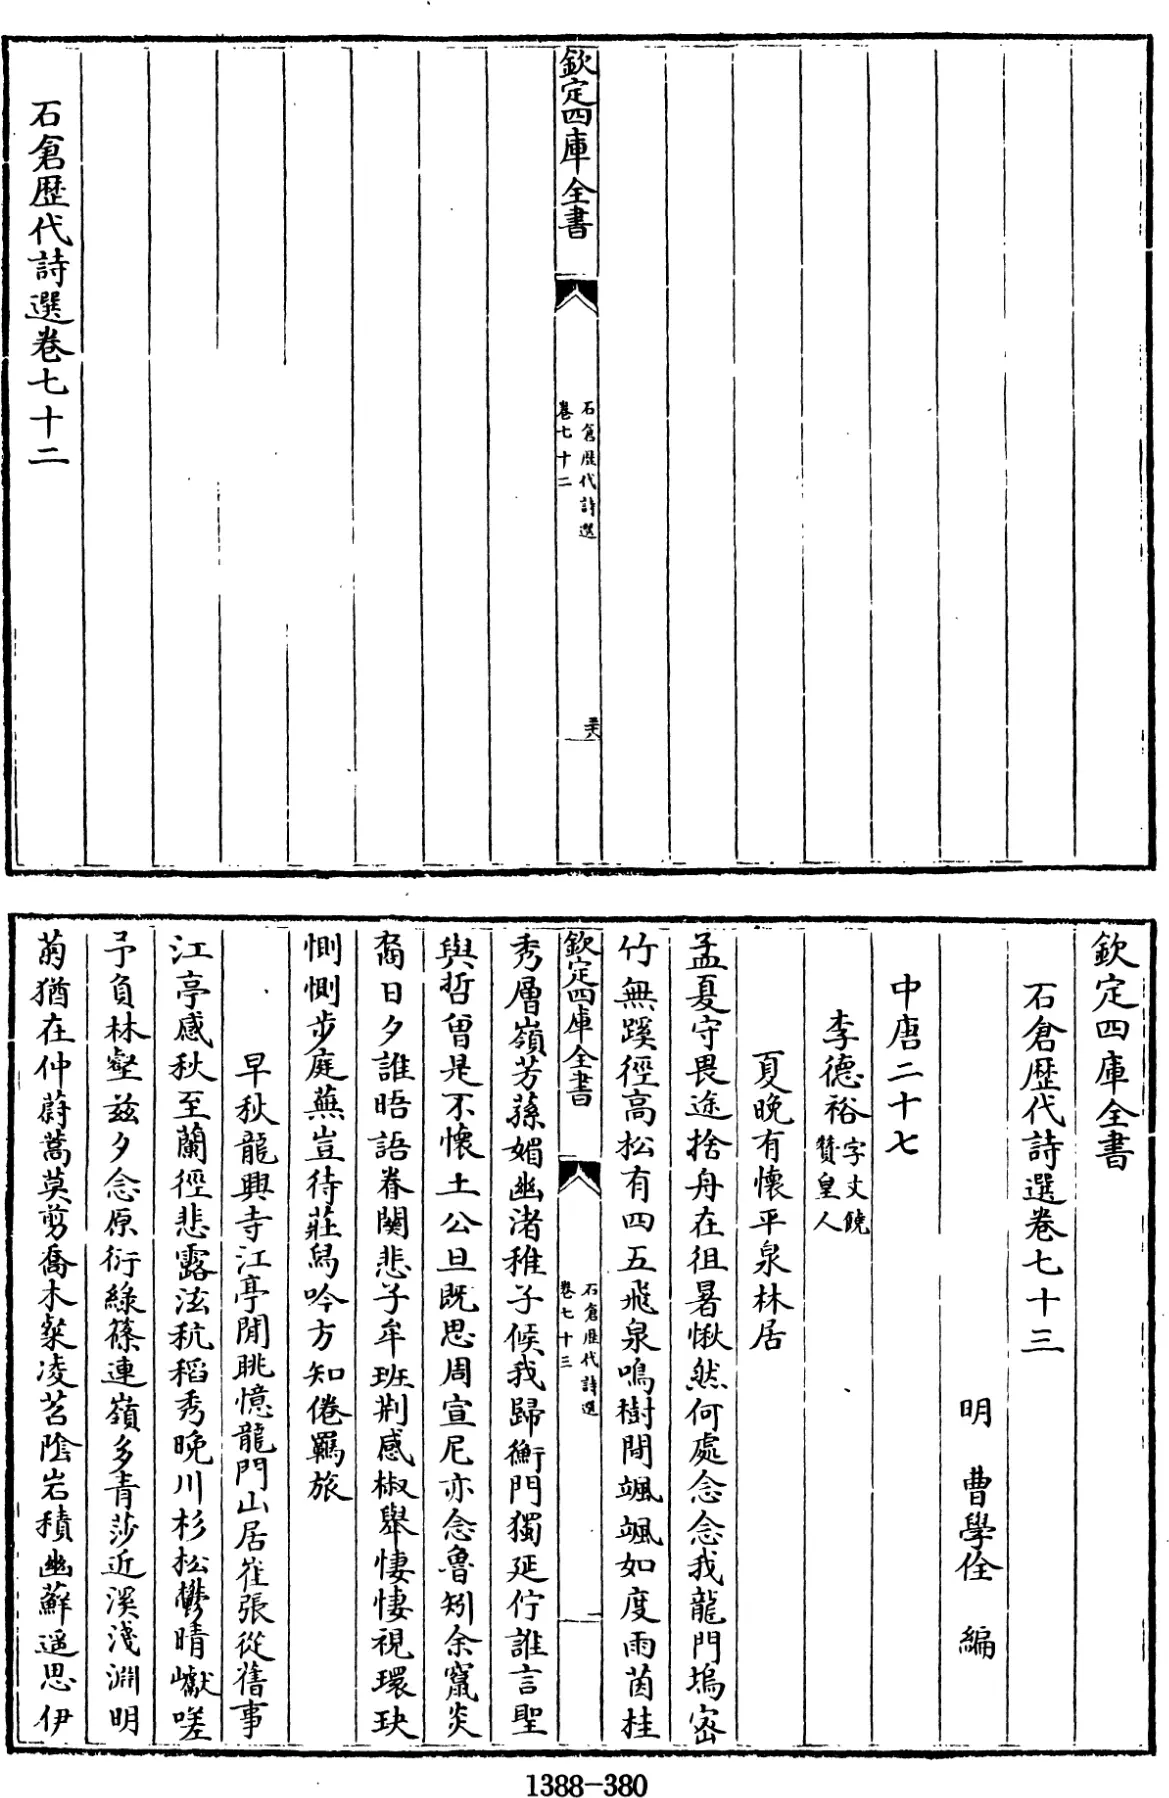 欽定四庫全書
石倉歷代詩選
卷七十二
石倉歴代詩選卷七十二
欽定四庫全書
石倉歴代詩選卷七十三
明 曹學佺 編
中唐二十七
李德裕字文饒贊皇人
夏晚有懷平泉林居
孟夏守畏途捨舟在徂暑愀然何處念念我龍門塢密
竹無蹊徑高松有四五飛泉鳴樹間颯颯如度雨菌桂
欽定四庫全書
石倉歷代詩選
卷七十三
一
秀層嶺芳蓀媚幽渚稚子候我歸衡門獨延佇誰言聖
與哲曾是不懷土公旦既思周宣尼亦念魯矧余竄炎
裔日夕誰晤語眷闕悲子牟班荆感椒舉悽悽視環玦
惻惻步庭蕪豈待莊舄吟方知倦羈旅
早秋龍興寺江亭閒眺憶龍門山居崔張從舊事
江亭感秋至蘭徑悲露泫秔稻秀晚川杉松鬱晴巘嗟
予負林壑兹夕念原衍緑篠連嶺多青莎近溪淺淵明
菊猶在仲蔚蒿莫剪喬木粲凌苕陰岩積幽蘚遥思伊
1388-380